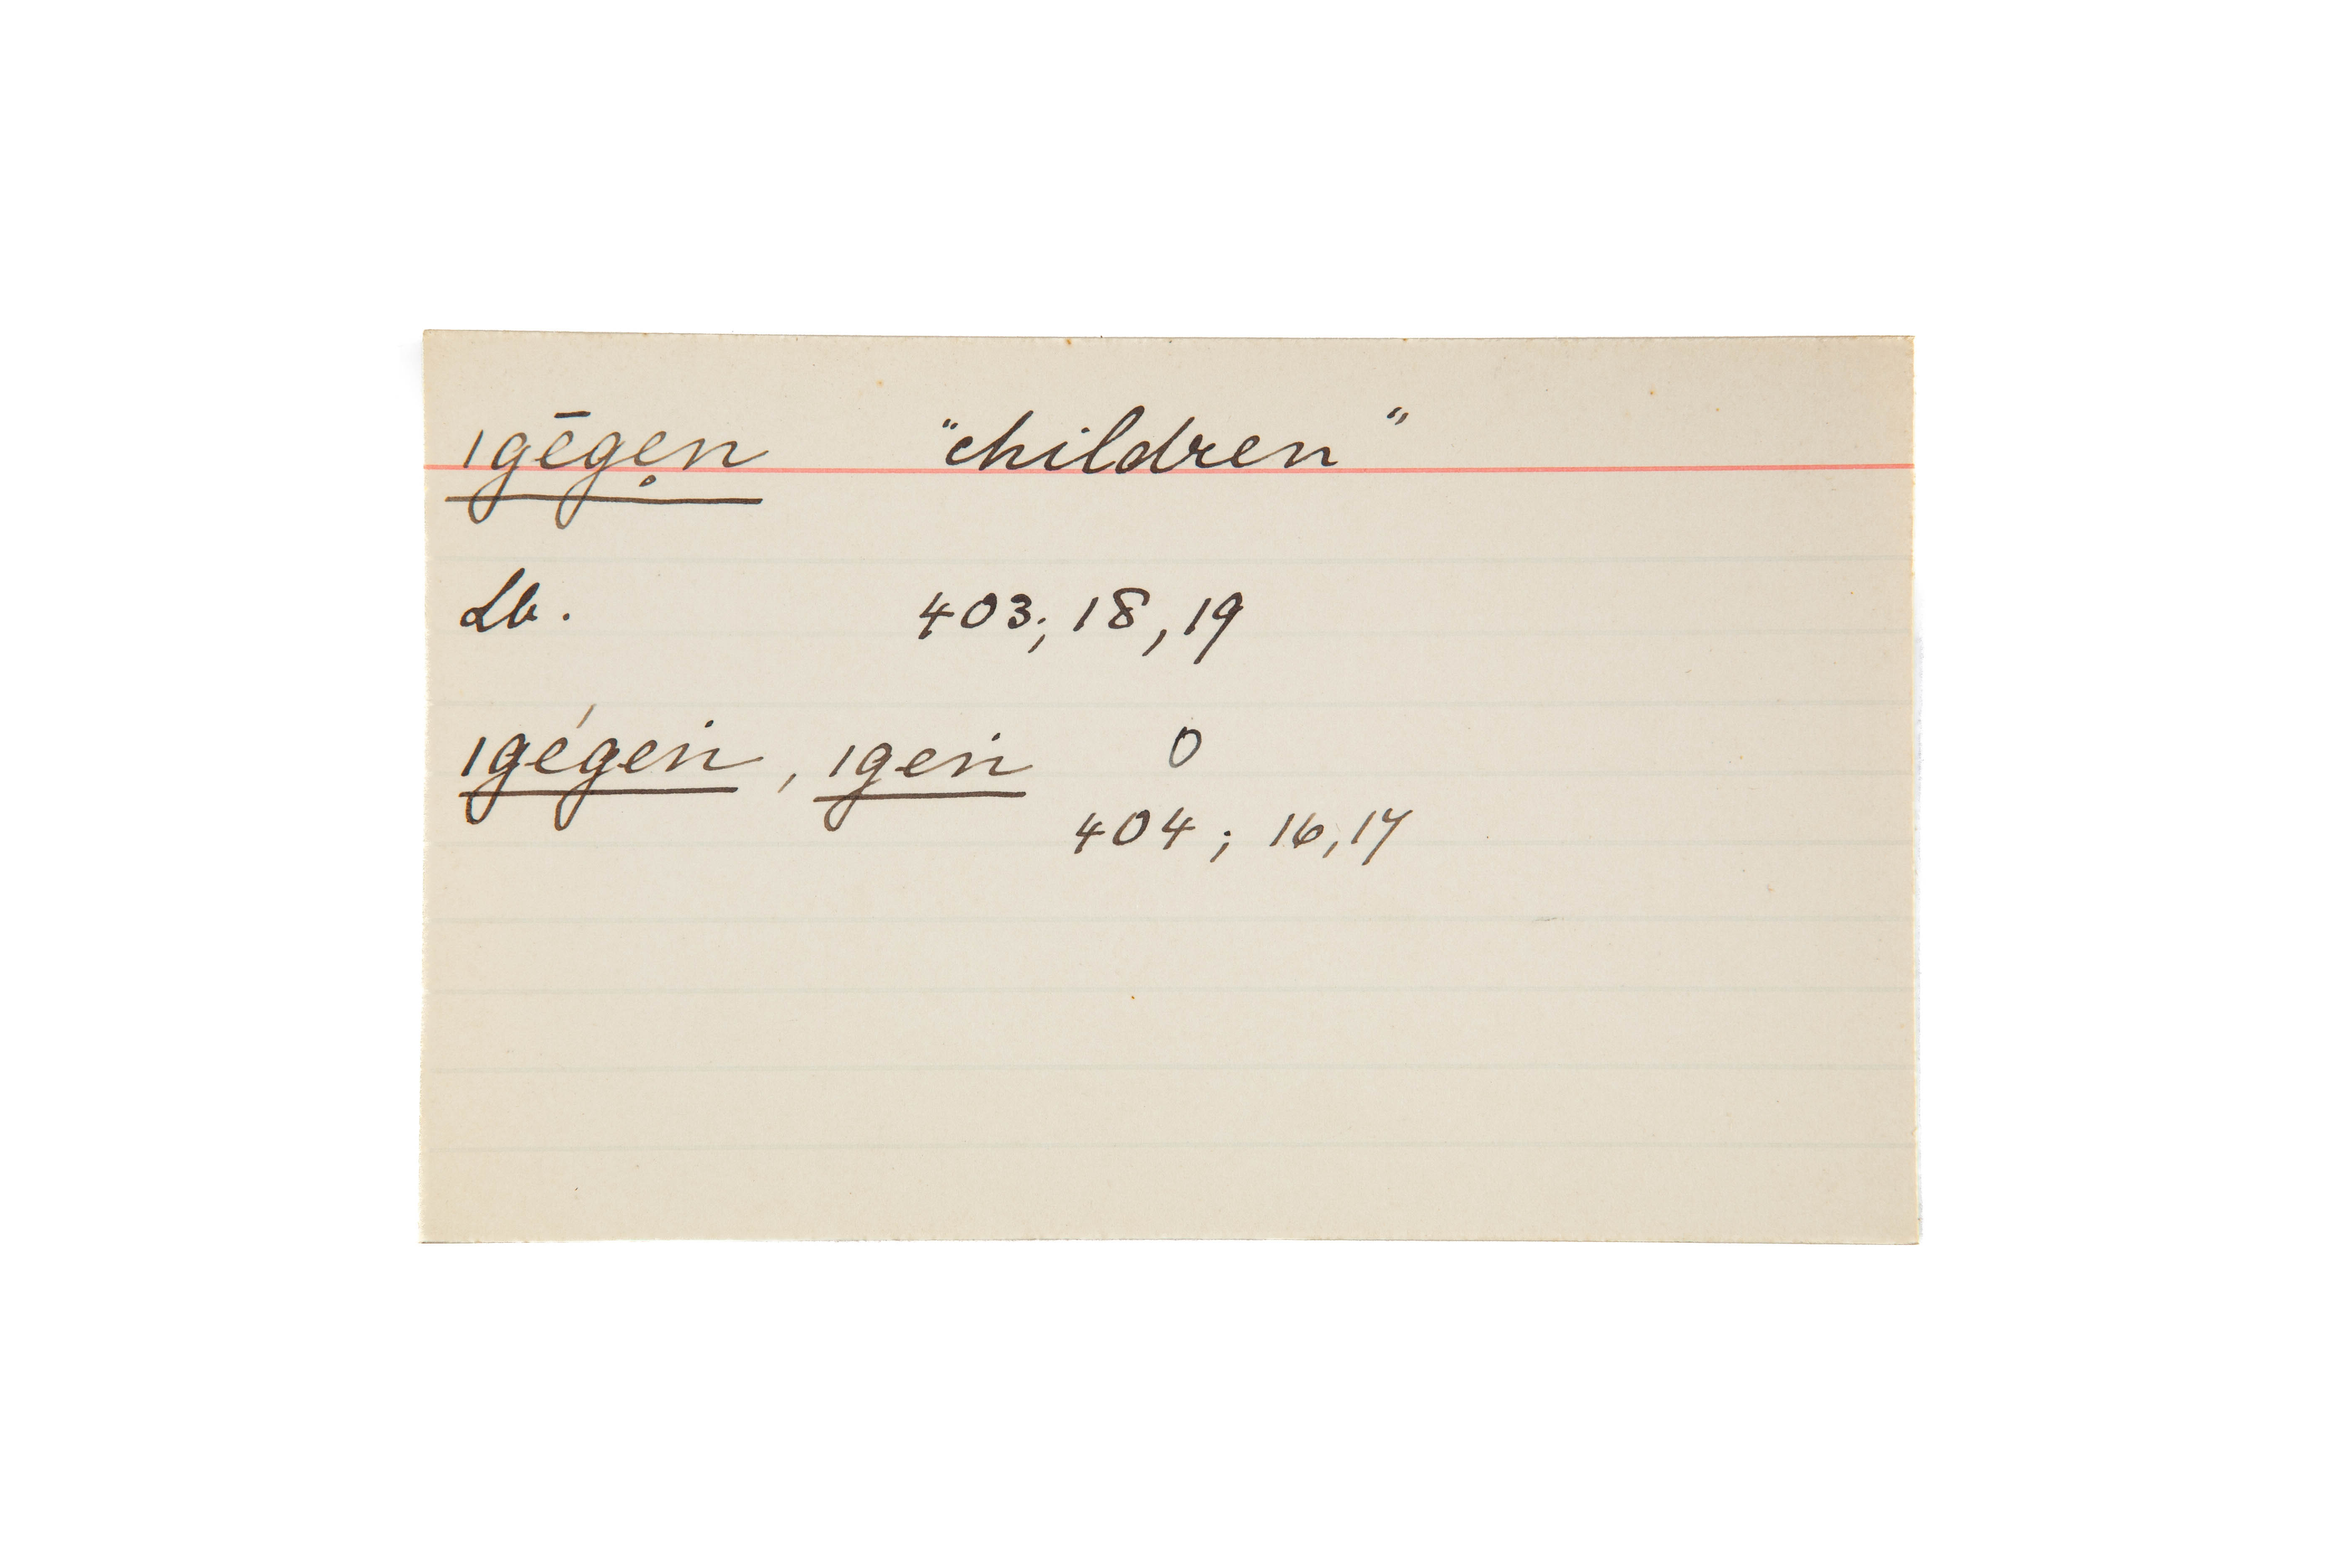 ıgēgẹn "children"
Lb. 403; 18, 19
ıgégeṅ, ıgeṅ 0
404; 16, 17